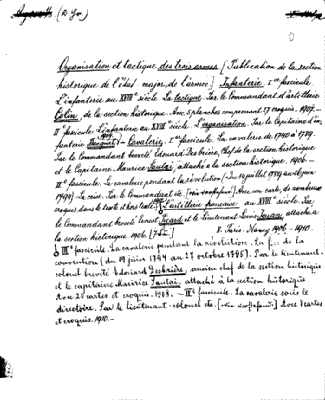 Organisation et tactique des trois armes [Publication de la section
historique de l'état major de l'armée]. Infanterie, Ier fascicule.
L'infanterie au XVIIIe siècle. La tactique. Par le Commandant d'artillerie
Colin, de la section historique. Avec planches comprenant 27 croquis. 1907.-
IIe fascicule. L'infanterie au XVIIIe siècle. L'organisation. Par le Capitaine d'in-
fanterie Cavalerie, Ier fascicule. La cavalerie de 1740 à 1789.
Par le Commandant breveté Édouard Desbrière, Chef de la section historique
et le Capitaine Maurice Sautai, attaché à la section historique. 1906.-
IIe fascicule. La cavalerie pendant la révolution (Du 14 juillet 1789 au 26 juin
1794) La crise. Par le Commandant etc. [voir Avec une carte, de nombreux
croquis dans le texte et hors texte. L'artillerie française au XVIIIe siècle. Par
le Commandant breveté Ernest Picard et le Lieutenant Louis Jouan, attachés à
la section historique. 1906.
8. Paris-Nancy 1906-1910.
] IIIe fascicule. La cavalerie pendant la révolution. La fin de la
convention (du 19 juin 1794 au 27 octobre 1795). Par le lieutenant-
colonel breveté Édouard Desbrière, ancien chef de la section historique
et le capitaine Maurice Sautai, attaché à la section historique
Avec 20 cartes et croquis. 1908. - IVe fascicule. La cavalerie sous le
directoire. Par le lieutenant-colonel etc. Avec cartes
et croquis. 1910.-